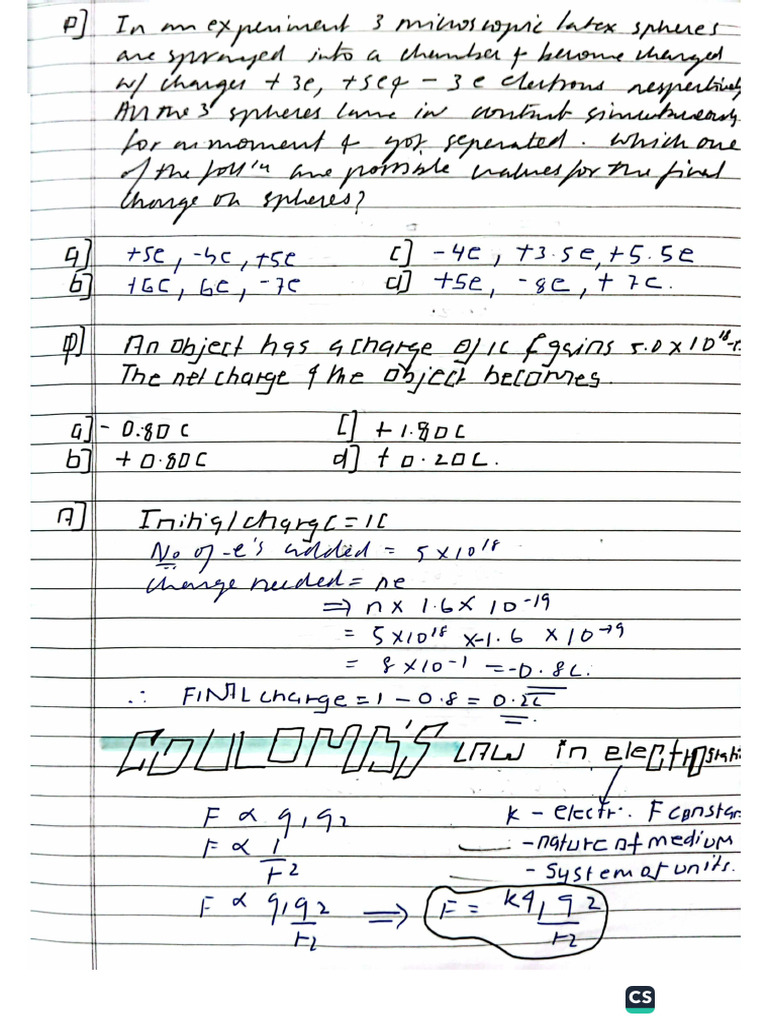 P] In an experiment 3 microscopic latex spheres
are sprayed into a chamber & become charged
w/ charges + 3e, +5e & - 3e electrons respectively
All the 3 spheres came in contact simultaneously
for a moment & got seperated. which one
of the foll'n are possible values for the final
charge on spheres?
a] +5e, -4e, +5e c] -4e, +3.5e, +5.5e
b] +6e, 6e, -7e d] +5e, -8e, + 7e.
P] An object has a charge of 1C & gains 5.0 x 10^18
The net charge of the object becomes.
a] - 0.80 C c] + 1.80C
b] + 0.80C d] + 0.20C.
A] Initial charge = 1C
No of -e's added = 5 x 10^18
charge needed = ne
⇒ n x 1.6 x 10^-19
= 5 x 10^18 x -1.6 x 10^-19
= 8 x 10^-1 = -0.8C.
∴ FINAL charge = 1 - 0.8 = 0.2C
COULOMB'S LAW in electrostati
F ∝ q1q2 K - electr. F constan
F ∝ 1/r2 - nature of medium
- System of units.
F ∝ q1q2/r2 ⇒ F = kq1q2/r2
CS